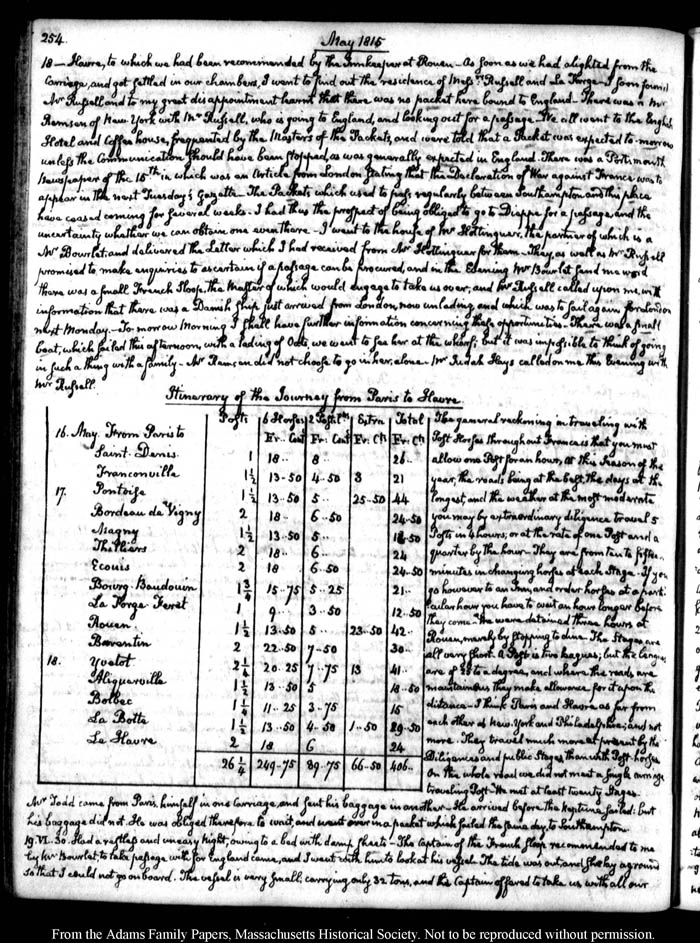 254.
May 1815
18 — Havre, to which we had been recommended by the Innkeeper at Rouen — As soon as we had alighted from the
Carriage, and got settled in our chambers, I went to find out the residence of Messrs. Russell and La Forge — I soon found
Mr Russell and to my great disappointment learnt that there was no packet here bound to England — There was a Mr
Remsen of New York with Mr Russell, who is going to England, and looking out for a passage. We all went to the English
Hotel and Coffee house, frequented by the Masters of the Packets, and were told that a Packet was expected to-morrow
unless the Communication should have been stopped, as was generally expected in England. There was a Portsmouth
Newspaper of the 15th in which was an Article from London stating that the Declaration of War against France was to
appear in the next Tuesday's Gazette. The Packets which used to pass regularly between Southampton and this place
have ceased coming for several weeks — I had thus the prospect of being obliged to go to Dieppe for a passage and the
uncertainty whether we can obtain one even there — I went to the house of Mr Hottinguer, the partner of which is a
Mr Bourlet, and delivered the Letter which I had received from Mr Hottinguer for them — They, as well as Mr Russell
promised to make enquiries to ascertain if a passage can be procured, and in the Evening Mr Bourlet send me word
there was a small French Sloop, the Master of which would engage to take us over, and Mr Russell called upon me, with
information that there was a Danish ship just arrived from London, now unlading and which was to sail again for London
next Monday — To-morrow Morning I shall have further information concerning these opportunities — There was a small
boat, which sailed this afternoon, with a lading of Oats, we went to see her at the wharf; but it was impossible to think of going
in such a thing with a family — Mr Remsen did not choose to go in her, alone — Mr Judah Hays called on me this Evening with
Mr Russell.
Itinerary of the Journey from Paris to Havre
Posts 6 Horses 2 Postns Extra Total
Fr. Cent Fr. Cent Fr. Ct Fr. Ct
16. May. From Paris to
Saint Denis 1 18.. 8 26..
Franconville 1½ 13-50 4-50 3 21
17. Pontoise 1½ 13-50 5.. 25-50 44
Bordeau de Vigny 2 18.. 6-50 24-50
Magny 1½ 13-50 5.. 18-50
Thilliers 2 18.. 6.. 24
Ecouis 2 18 6-50 24-50
Bourg-Baudouin 1¾ 15-75 5-25 21..
La Forge Feret 1 9.. 3-50 12-50
Rouen 1½ 13-50 5.. 23-50 42..
Barentin 2 22-50 7-50 30..
18. Yvetot 2¼ 20-25 7-75 13 41..
Aliquerville 1½ 13-50 5 18-50
Bolbec 1¼ 11-25 3-75 15
La Botte 1½ 13-50 4-50 1-50 19-50
Le Havre 2 18 6 24
26¼ 249-75 89-75 66-50 406..
The general reckoning in traveling with
Post Horses throughout France is that you must
allow one Post for an hour. At this Season of the
year, the roads being at the best, the days at the
longest, and the weather at the most moderate
you may by extraordinary diligence travel 5
Posts in 4 hours; or at the rate of one Post and a
quarter by the hour. They are from ten to fifteen
minutes in changing horses at each Stage. If you
go however to an Inn, and order horses at a parti
cular hour you have to wait an hour longer before
they come — We were detained three hours at
Rouen, merely by stopping to dine. The Stages are
all very short. A Post is two leagues; but the leagues
are of 25 to a degree, and where the roads are
mountainous they make allowance for it upon the
distance — I think Paris and Havre as far from
each other as New-York and Philadelphia; and not
more. They travel much more at present by the
Diligences and public Stages than with Post-horses
On the whole road we did not meet a single carriage
traveling Post. We met at least twenty Stages.
Mr Todd came from Paris, himself in one Carriage, and sent his baggage in another. He arrived before the Neptune sailed; but
his baggage did not. He was obliged therefore to wait, and went over in a packet which sailed the same day, to Southampton
19. VI. 30. Had a restless and uneasy Night, owing to a bed with damp sheets — The Captain of the French Sloop recommended to me
by Mr Bourlet, to take passage with for England came, and I went with him to look at his vessel. The tide was out, and she lay aground
so that I could not go on board. The vessel is very small; carrying only 32 tons, and the Captain offered to take us with all our
From the Adams Family Papers, Massachusetts Historical Society. Not to be reproduced without permission.